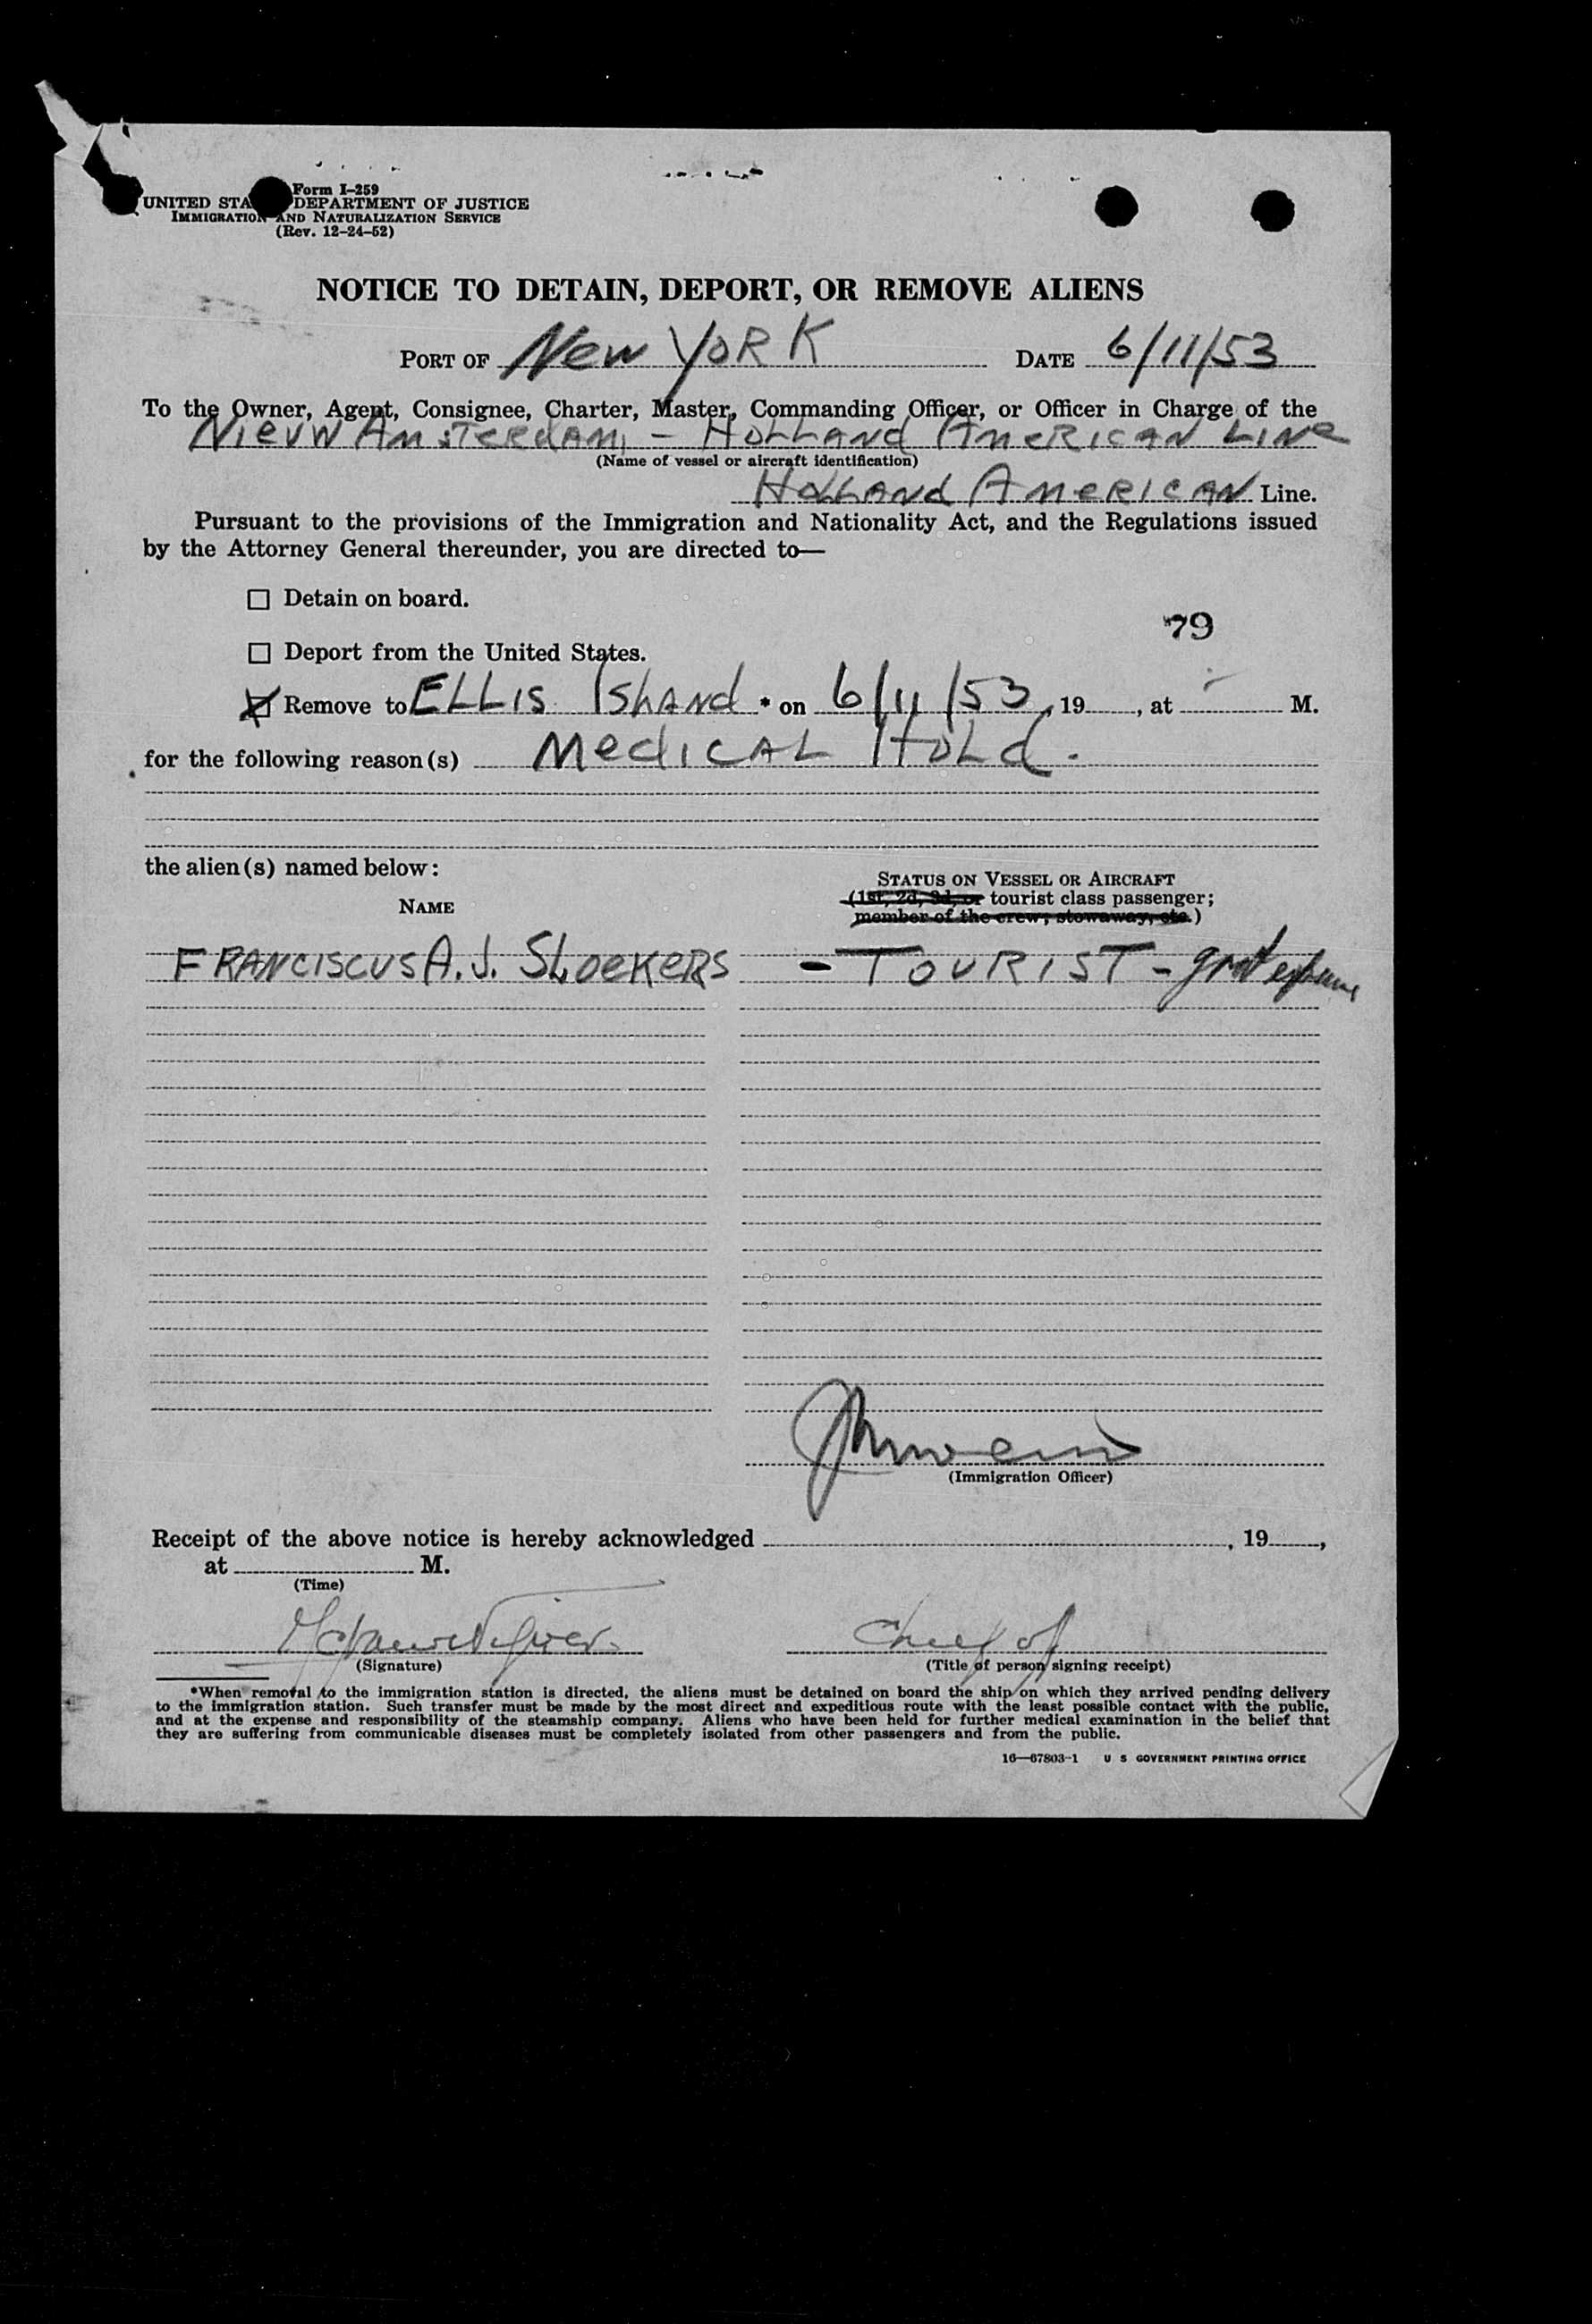 Form I-259
UNITED STA DEPARTMENT OF JUSTICE
IMMIGRATION AND NATURALIZATION SERVICE
(Rev. 12-24-52)
NOTICE TO DETAIN, DEPORT, OR REMOVE ALIENS
PORT OF New YORK DATE 6/11/53
To the Owner, Agent, Consignee, Charter, Master, Commanding Officer, or Officer in Charge of the
NIEUW AMSTERdAM - HOLLANd AMERICAN LINe
(Name of vessel or aircraft identification)
HOLLANd AMeRICAN Line.
Pursuant to the provisions of the Immigration and Nationality Act, and the Regulations issued
by the Attorney General thereunder, you are directed to—
☐ Detain on board.
79
☐ Deport from the United States.
☒ Remove to ELLIS IShANd * on 6/11/53, 19, at M.
for the following reason(s) MedICAL HOLd.
the alien(s) named below:
STATUS ON VESSEL OR AIRCRAFT
NAME (1st, 2d, 3d, or tourist class passenger;
member of the crew; stowaway, etc.)
FRANCISCUS A. J. SLOeKeRS - TOURIST -
(Immigration Officer)
Receipt of the above notice is hereby acknowledged , 19 ,
at M.
(Time)
Chief of
(Signature) (Title of person signing receipt)
*When removal to the immigration station is directed, the aliens must be detained on board the ship on which they arrived pending delivery
to the immigration station. Such transfer must be made by the most direct and expeditious route with the least possible contact with the public,
and at the expense and responsibility of the steamship company. Aliens who have been held for further medical examination in the belief that
they are suffering from communicable diseases must be completely isolated from other passengers and from the public.
16—67803-1 U S GOVERNMENT PRINTING OFFICE